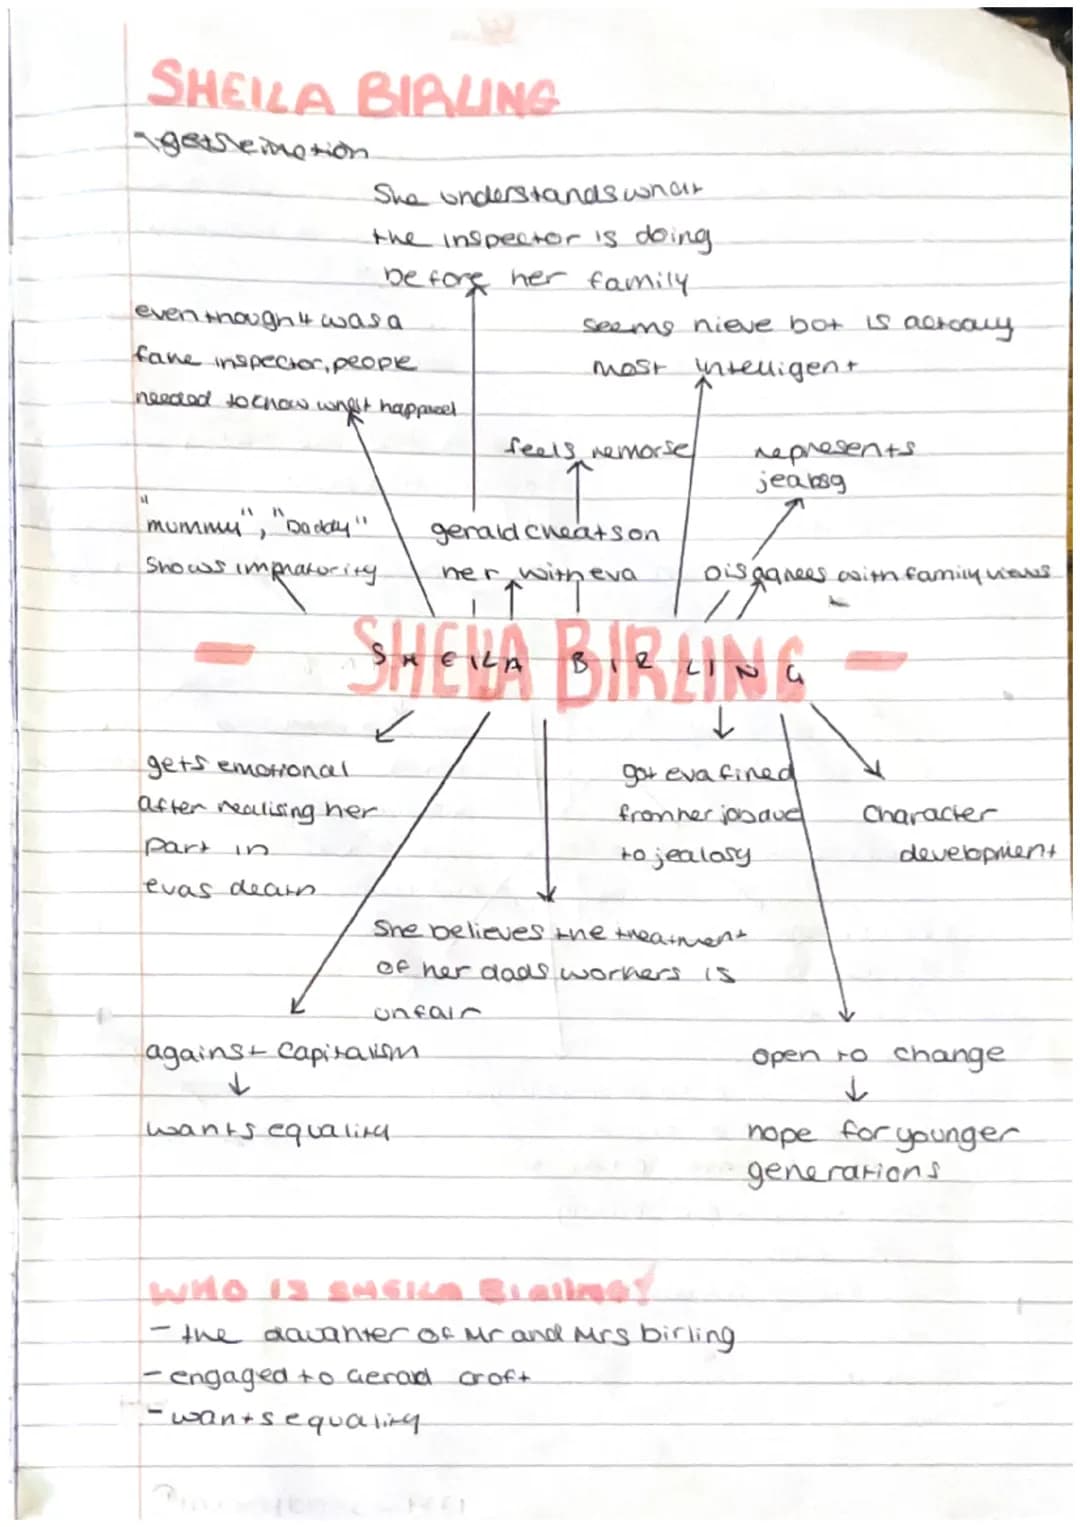 SHEILA BIRLING
getseimotion
She understands what
the inspector is doing
before her family
even though it was a
fake inspector, people
needed to know what happned
seems nieve but is actually
most intelligent
feels remorse
represents
jealosy
"mummy", "Daddy"
shows immaturity
gerald cheats on
her with eva
Disagrees with family views
- SHEILA BIRLING -
SHEILA BIRLING
gets emotional
after realising her
part in
evas death
got eva fired
from her job due
to jealosy
Character
development
She believes the treatment
of her dads workers is
unfair
against capitalism
wants equality
open to change
hope for younger
generations
WHO IS SHEILA Birling?
- the daughter of Mr and Mrs birling
- engaged to Gerald croft
- wants equality